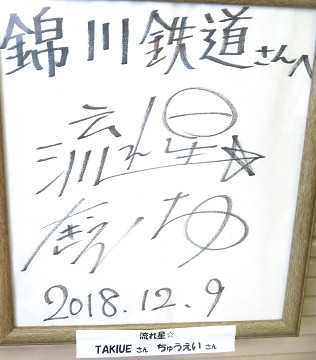 錦川鉄道さんへ
流れ星☆
たきうえ ちゅ
2018.12.9
流れ星☆
TAKIUE さん ちゅうえい さん